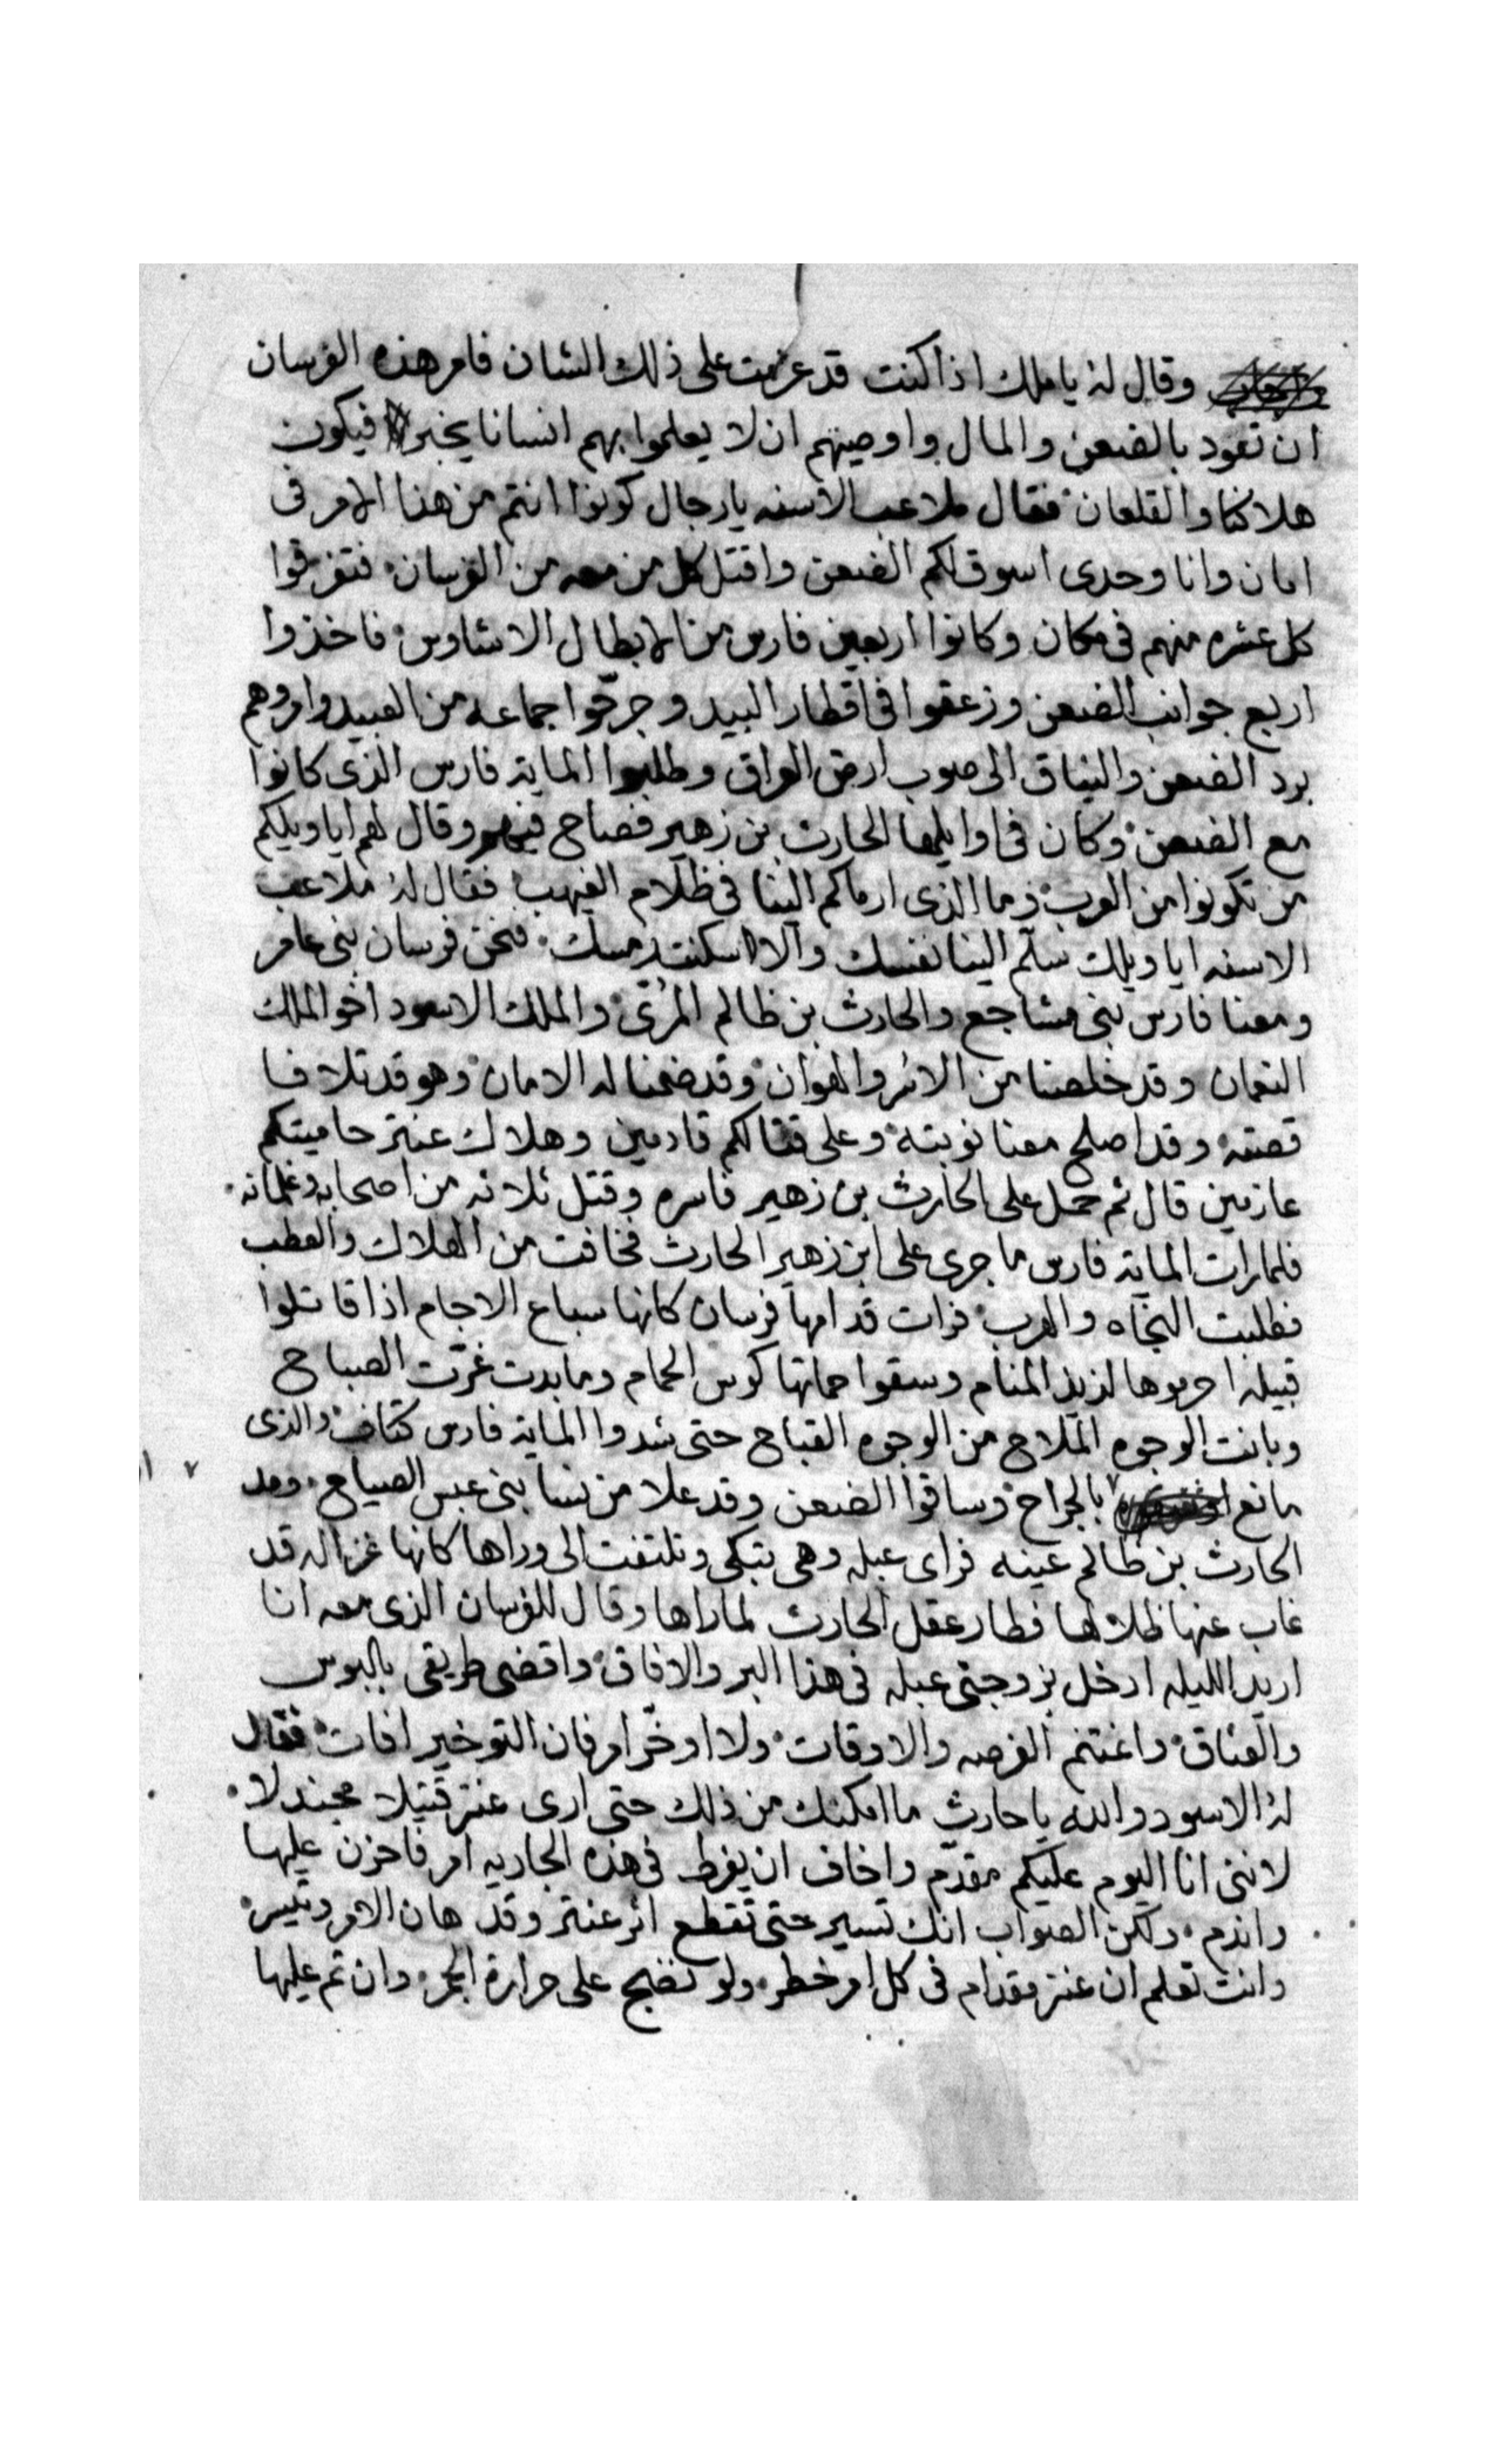 وقال له يا ملك اذا كنت قد عزمت على ذلك الشان فامر هذه الفرسان
ان تعود بالضعن والمال واوصيهم ان لا يعلموا بهم انسانا يخبر فيكون
هلاكنا والقلعان فقال ملاعب الاسنه يا رجال كونوا انتم من هذا الامر فى
امان وانا وحدى اسوق لكم الضعن واقتل كل من معه من الفرسان فتفرقوا
كل عشره منهم فى مكان وكانوا اربعين فارس من الابطال الاشاوس فاخذوا
اربع جوانب الضعن وزعقوا فى اقطار البيد وجرّحوا جماعه من العبيد وامروهم
برد الضعن والنياق الى صوب ارض العراق وطلبوا الماية فارس الذى كانوا
مع الضعن وكان فى اوايلها الحارث بن زهير فصاح فيهم وقال لهم ايا ويلكم
من تكونوا من العرب وما الذى ارماكم الينا فى ظلام الغيهب فقال له ملاعب
الاسنه ايا ويلك سلّم الينا نفسك والا اسكنتد رمسك فنحن فرسان بنى عامر
ومعنا فارس بنى مشاجع والحارث بن ظالم المرّى والملك الاسود اخو الملك
النعمان وقد خلصنا من الاسر والهوان وقد ضمنا له الامان وهو قد تلافا
قصته وقد اصلح معنا نوبته وعلى قتالكم قادمين وهلاك عنتر حاميتكم
عازمين قال ثم حمل على الحارث بن زهير فاسره وقتل ثلاثه من اصحابه وغلمانه
فلما رات الماية فارس ما جرى على ابن زهير الحارث فخافت من الهلاك والعطب
فطلبت النجاه والهرب فرات قدامها فرسان كانها سباع الاجام اذا قاتلوا
قبيله احرموها لذيذ المنام وسقوا حماتها كوس الحمام وما بدت غرّت الصباح
وبانت الوجوه الملاح من الوجوه القباح حتى شدوا الماية فارس كتاف والذى
مانع بالجراح وساقوا الضعن وقد علا من نسا بنى عبس الصياح ومد
الحارث بن ظالم عينه فراى عبله وهى تبكى وتلتفت الى وراها كانها غزاله قد
غاب عنها طلاها فطار عقل الحارث لما راها وقال للفرسان الذى معه انا
اريد الليله ادخل بزوجتى عبله فى هذا البر والافاق واقضى طريقى بالبوس
والعناق واغتنم الفرصه والاوقات ولا اوخّر امر فان التوخير افات فقال
له الاسود والله يا حارث ما امكنك من ذلك حتى ارى عنتر قتيلا مجندلا
لاننى انا اليوم عليكم مقدّم واخاف ان يفرط فى هذه الجاريه امر فاحزن عليها
واندم ولكن الصواب انك تسير حتى تقطع اثر عنتر وقد هان الامر وتيسر
وانت تعلم ان عنتر مقدام فى كل امر خطر ولو تضجح على حرارة الجمر وان تم عليها